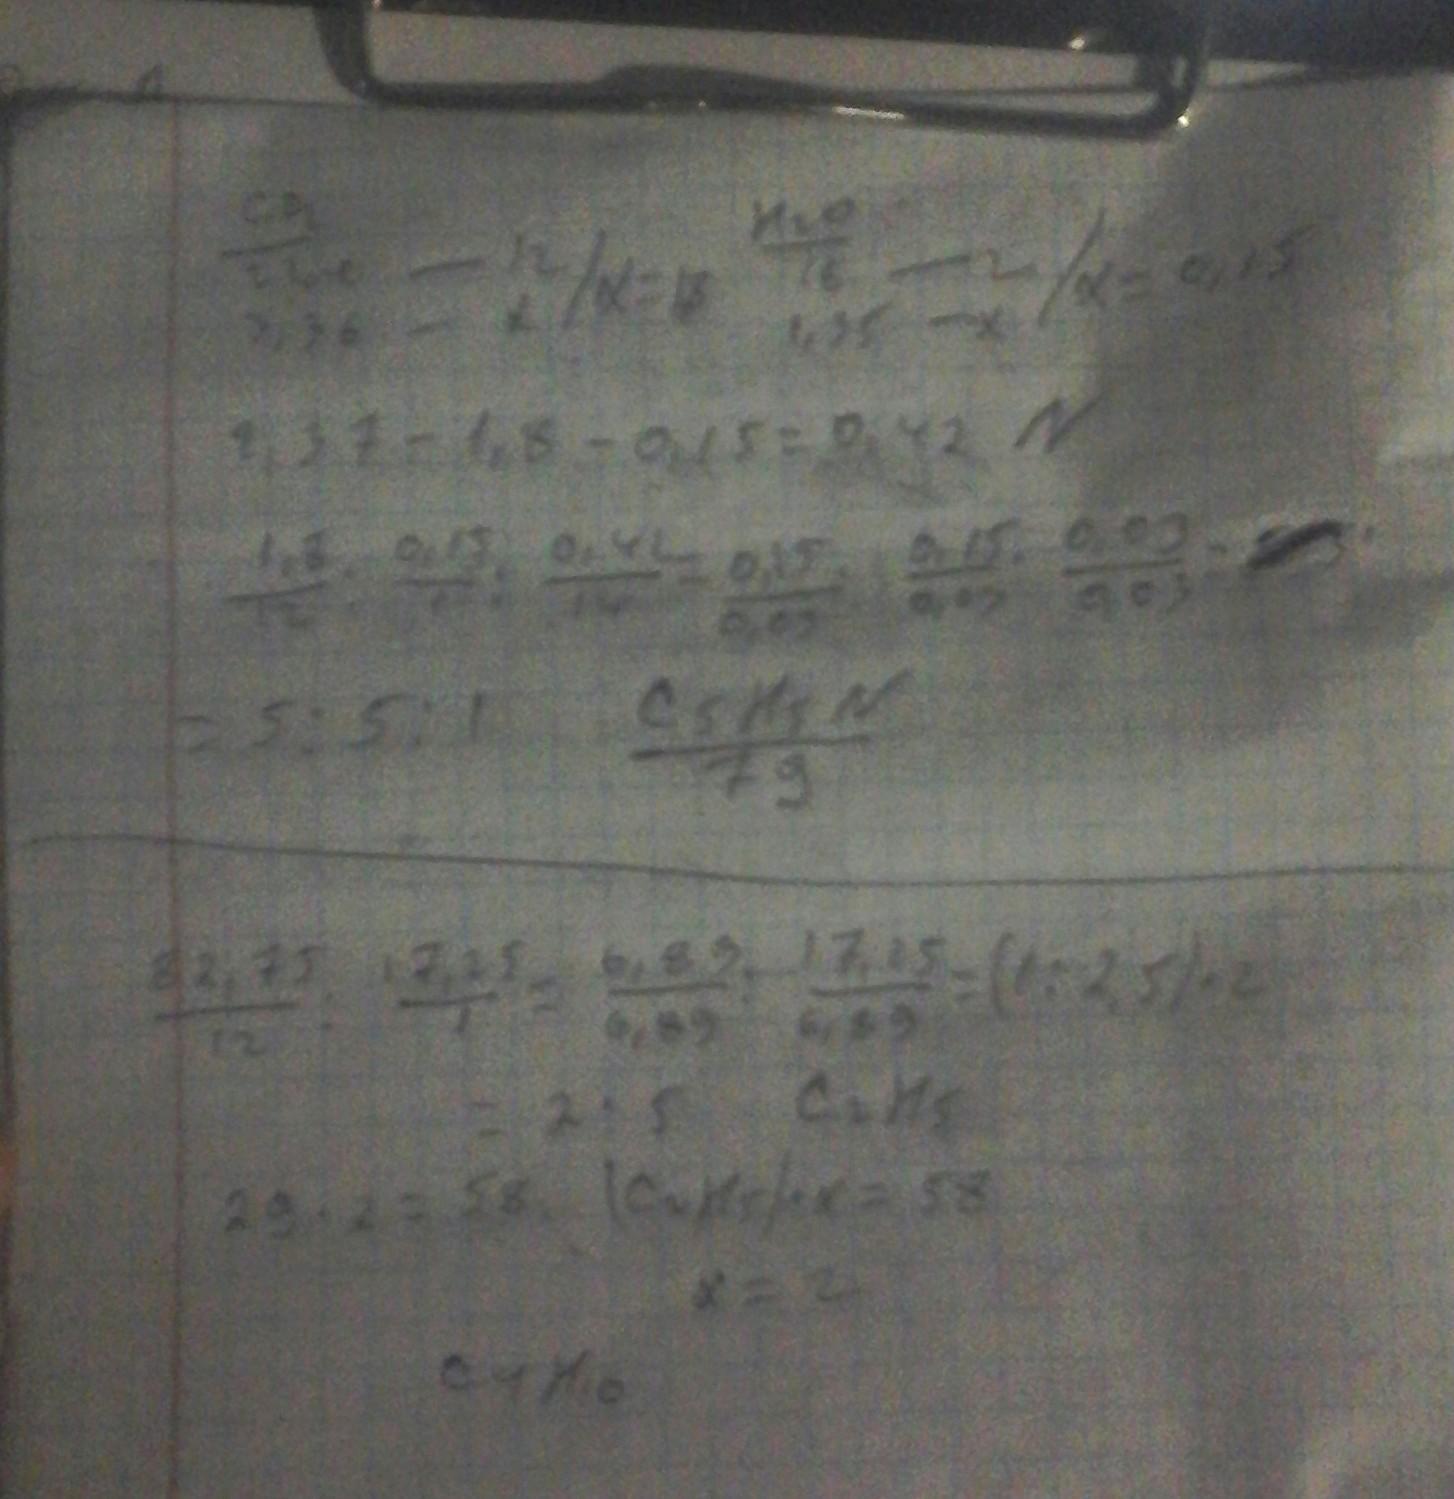 CO₂ H₂O
22,4 — 12 / x = 1,8 18 — 2 / x = 0,15
3,36 — x 1,35 — x
2,37 - 1,8 - 0,15 = 0,42 N
1,8/12 : 0,15/1 : 0,42/14 = 0,15/0,03 : 0,15/0,03 : 0,03/0,03 =
= 5 : 5 : 1 C₅H₅N
79
82,75/12 : 17,25/1 = 6,89/6,89 : 17,25/6,89 = (1 : 2,5) · 2
= 2 : 5 C₂H₅
29 · 2 = 58. (C₂H₅) · x = 58
x = 2
C₄H₁₀